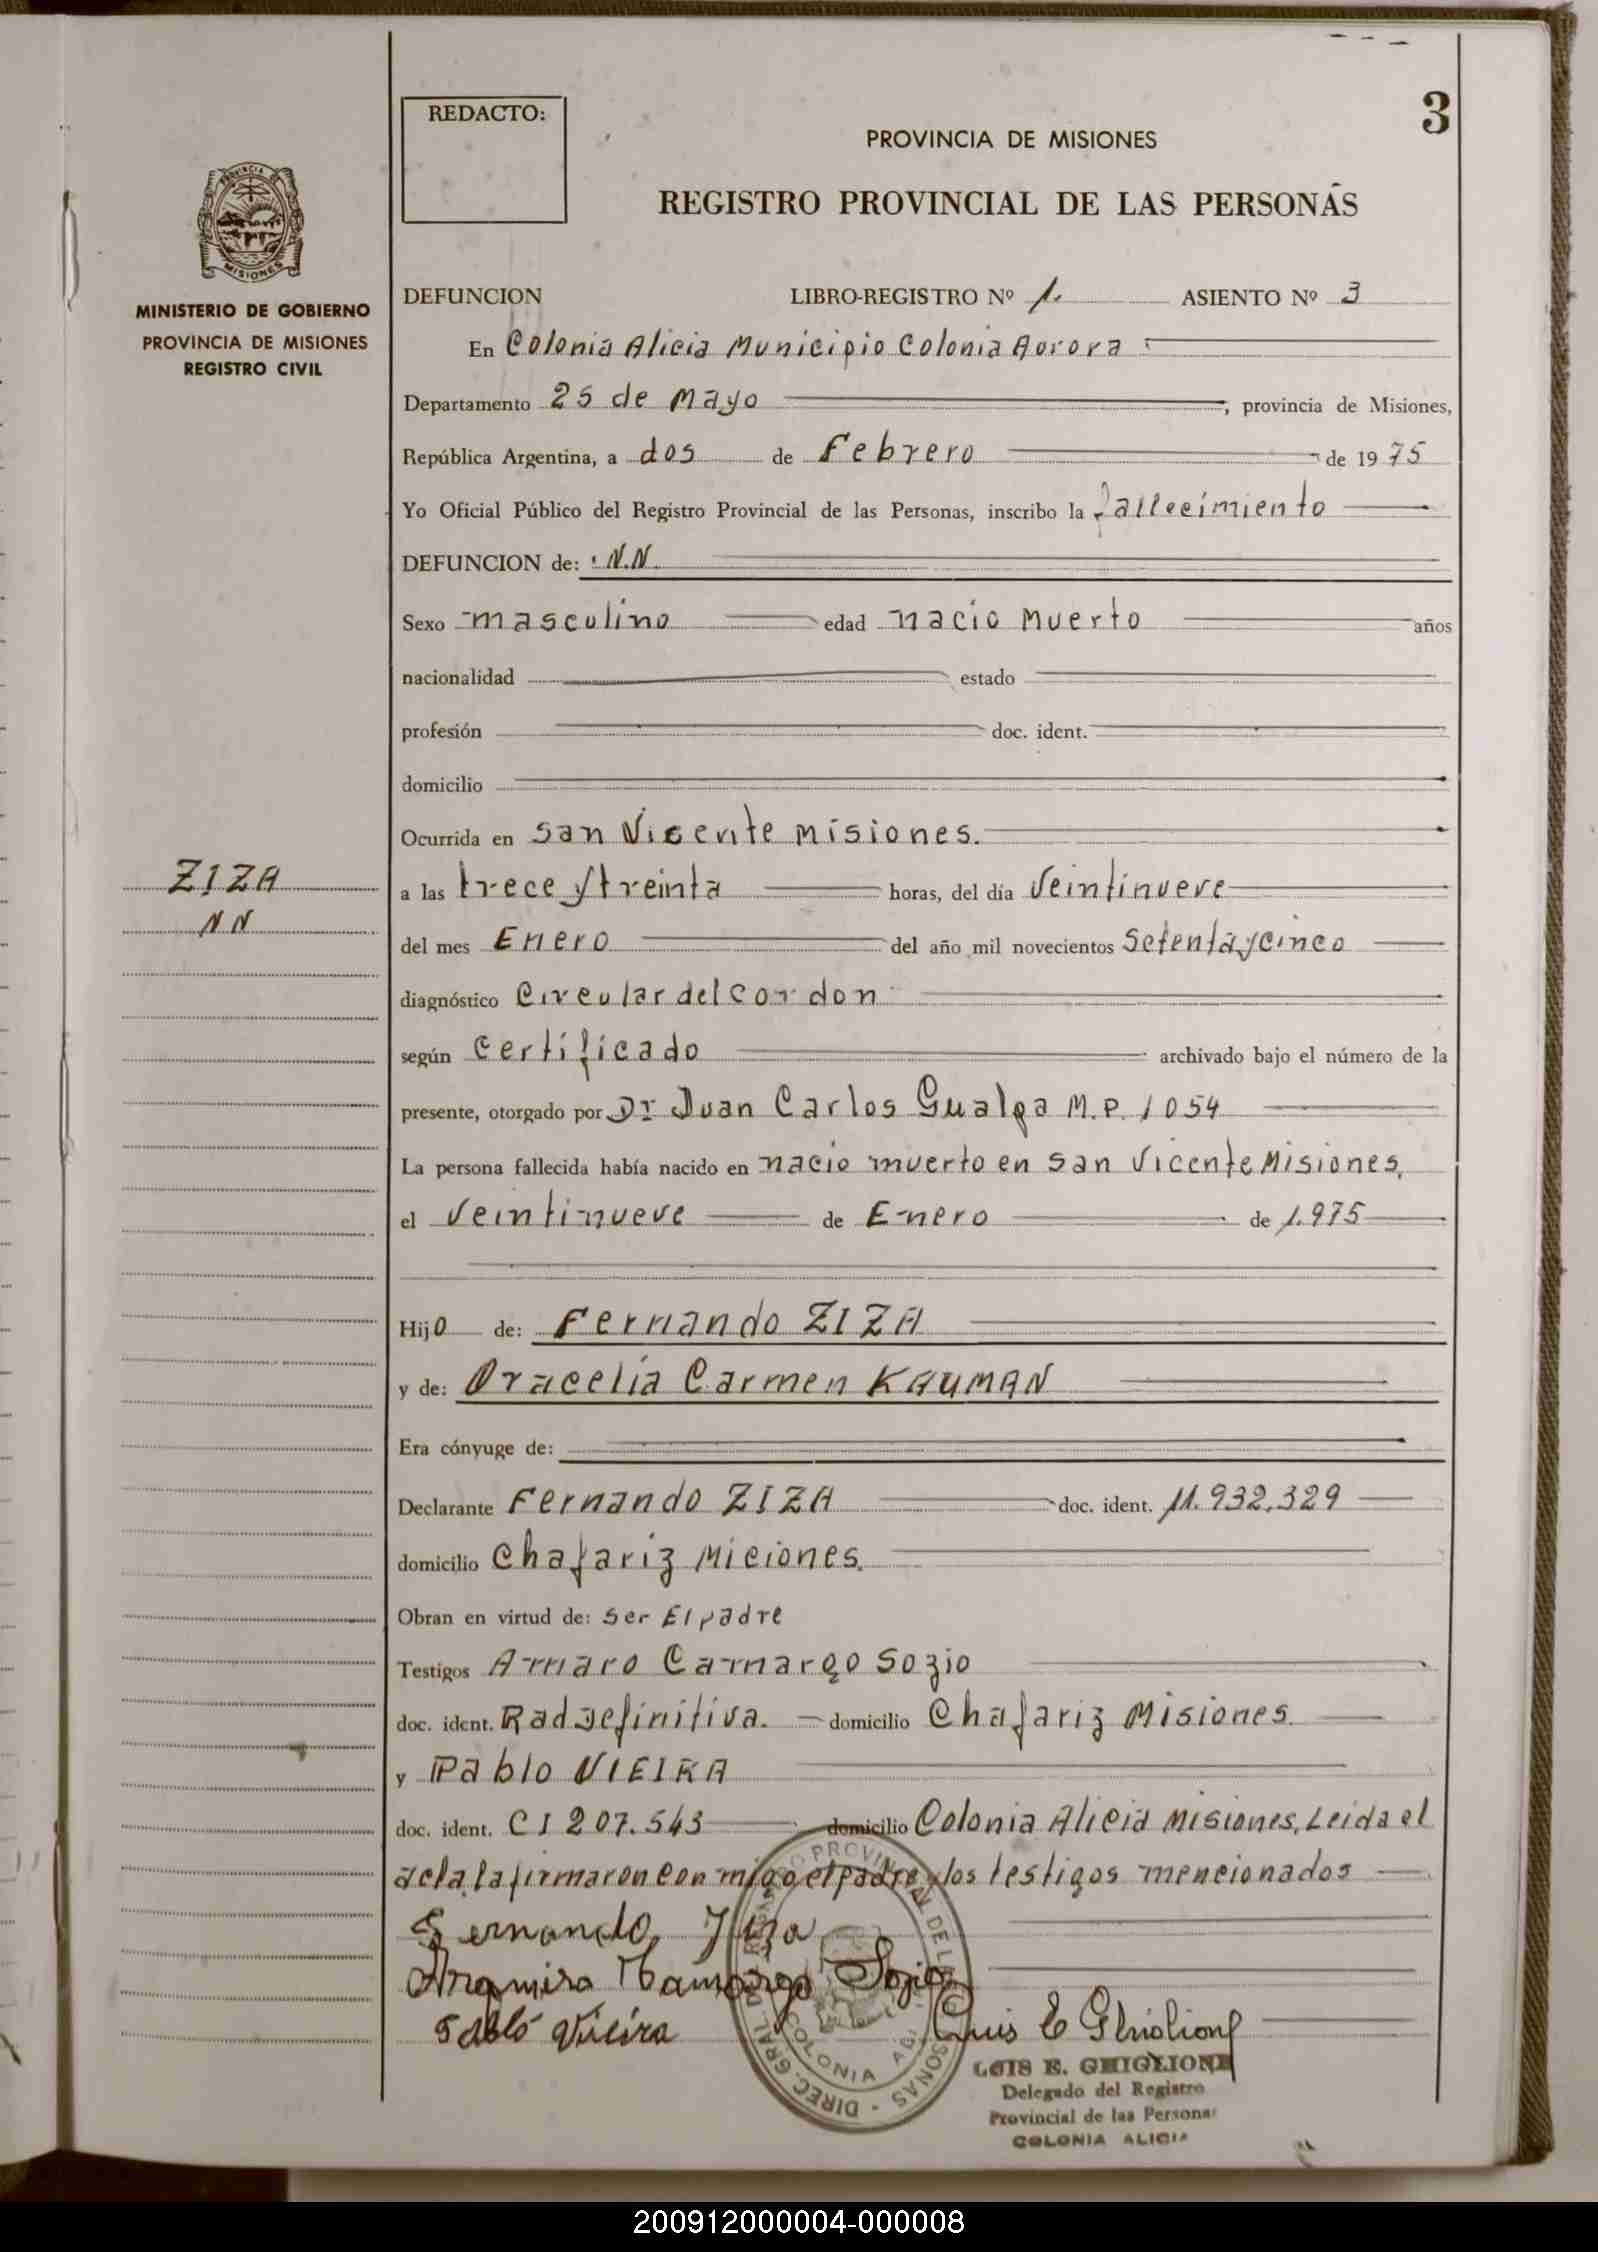 3
REDACTO:
PROVINCIA DE MISIONES
REGISTRO PROVINCIAL DE LAS PERSONAS
PROVINCIA DE
MISIONES
MINISTERIO DE GOBIERNO
PROVINCIA DE MISIONES
REGISTRO CIVIL
DEFUNCION LIBRO-REGISTRO Nº 1. ASIENTO Nº 3
En Colonia Alicia Municipio Colonia Aurora
Departamento 25 de Mayo, provincia de Misiones,
República Argentina, a dos de Febrero de 1975
Yo Oficial Público del Registro Provincial de las Personas, inscribo la fallecimiento
DEFUNCION de: N.N.
Sexo masculino edad nacio Muerto años
nacionalidad estado
profesión doc. ident.
domicilio
Ocurrida en San Vicente Misiones.
ZIZA
NN
a las trece y treinta horas, del día Veintinueve
del mes Enero del año mil novecientos Setenta y cinco
diagnóstico Circular del cordon
según Certificado archivado bajo el número de la
presente, otorgado por Dr Juan Carlos Gualpa M.P. 1054
La persona fallecida había nacido en nacio muerto en San Vicente Misiones,
el Veintinueve de Enero de 1.975
Hijo de: Fernando ZIZA
y de: Oracelia Carmen KAUMAN
Era cónyuge de:
Declarante Fernando ZIZA doc. ident. 11.932,329
domicilio Chafariz Miciones.
Obran en virtud de: Ser El padre
Testigos Amaro Camargo Sozio
doc. ident. Rad definitiva. domicilio Chafariz Misiones.
y Pablo VIEIRA
doc. ident. CI 207.543 domicilio Colonia Alicia Misiones, Leida el
acta, la firmaron con migo el padre y los testigos mencionados
Fernando Ziza
Camargo Sozio
Pablo Vieira
Luis E Ghiglione
DIREC. GRAL. DEL REGISTRO PROVINCIAL DE LAS PERSONAS
COLONIA
LUIS E. GHIGLIONE
Delegado del Registro
Provincial de las Personas
COLONIA ALICIA
200912000004-000008